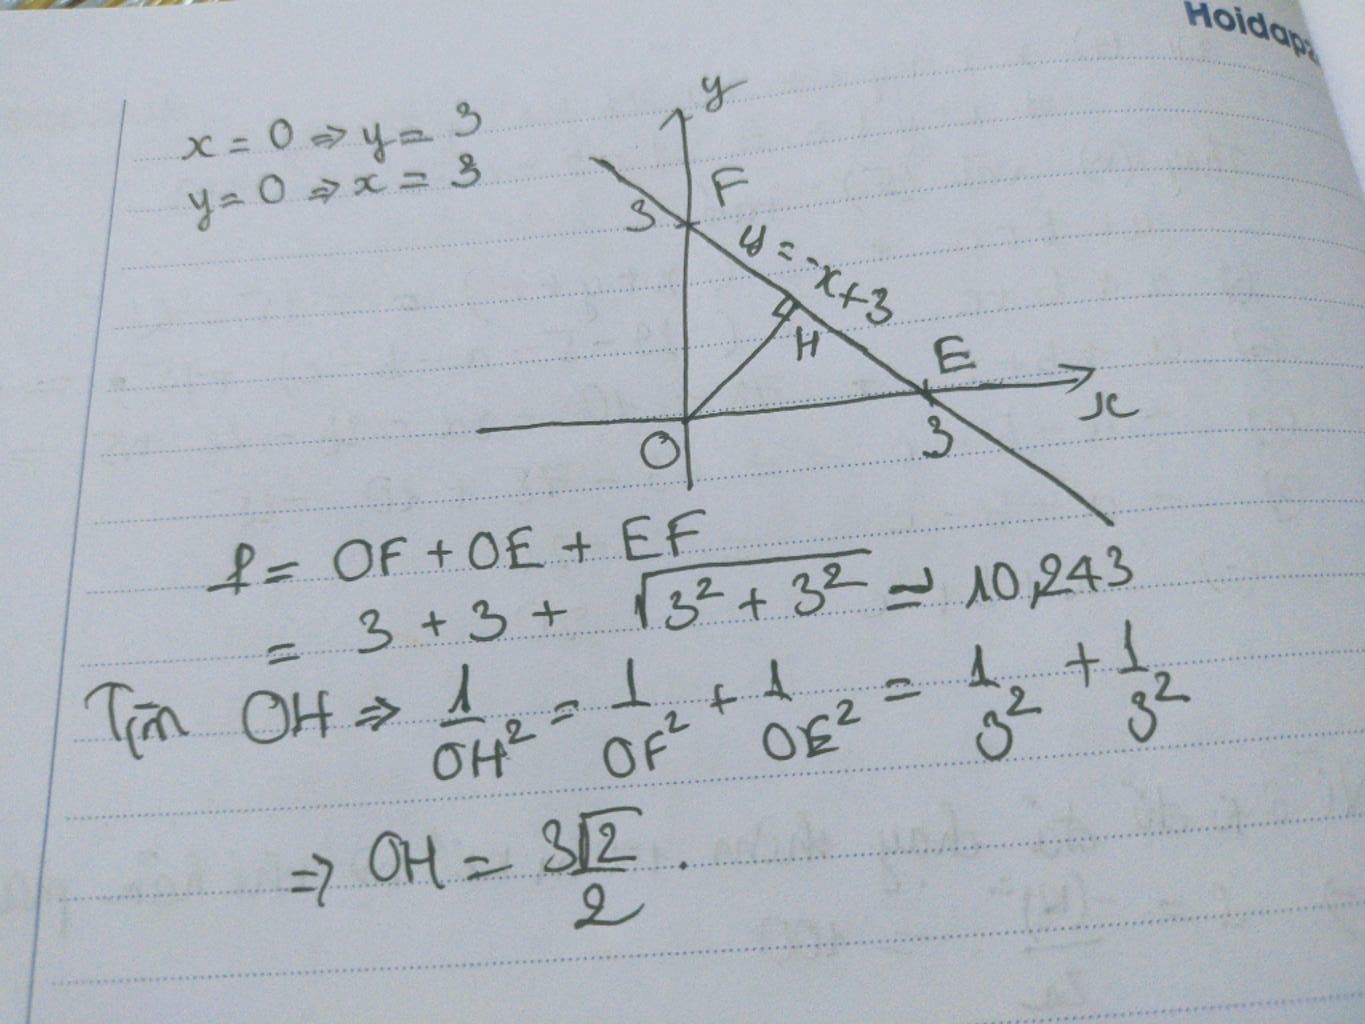 Hoidap
x = 0 ⇒ y = 3
y = 0 ⇒ x = 3
y
F
3
y = -x+3
H
E
x
O
3
P = OF + OE + EF
= 3 + 3 + √(3² + 3²) ≃ 10,243
Tìm OH ⇒ 1/OH² = 1/OF² + 1/OE² = 1/3² + 1/3²
⇒ OH = 3√2/2 .